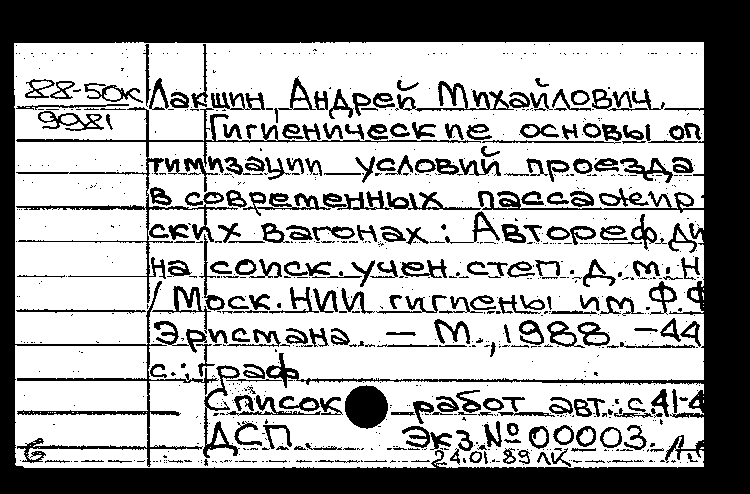 88-50к
9981
Лакшин, Андрей Михайлович.
Гигиенические основы оп
тимизации условий проезда
в современных пассажир-
ских вагонах: Автореф. ди
на соиск. учен. степ. д. м. н
/ Моск. НИИ гигиены им. Ф.Ф
Эрисмана. – М., 1988. – 44
с.; граф.
Список работ авт.: с. 41-4
ДСП. Экз. № 00003.
6 24.01.89